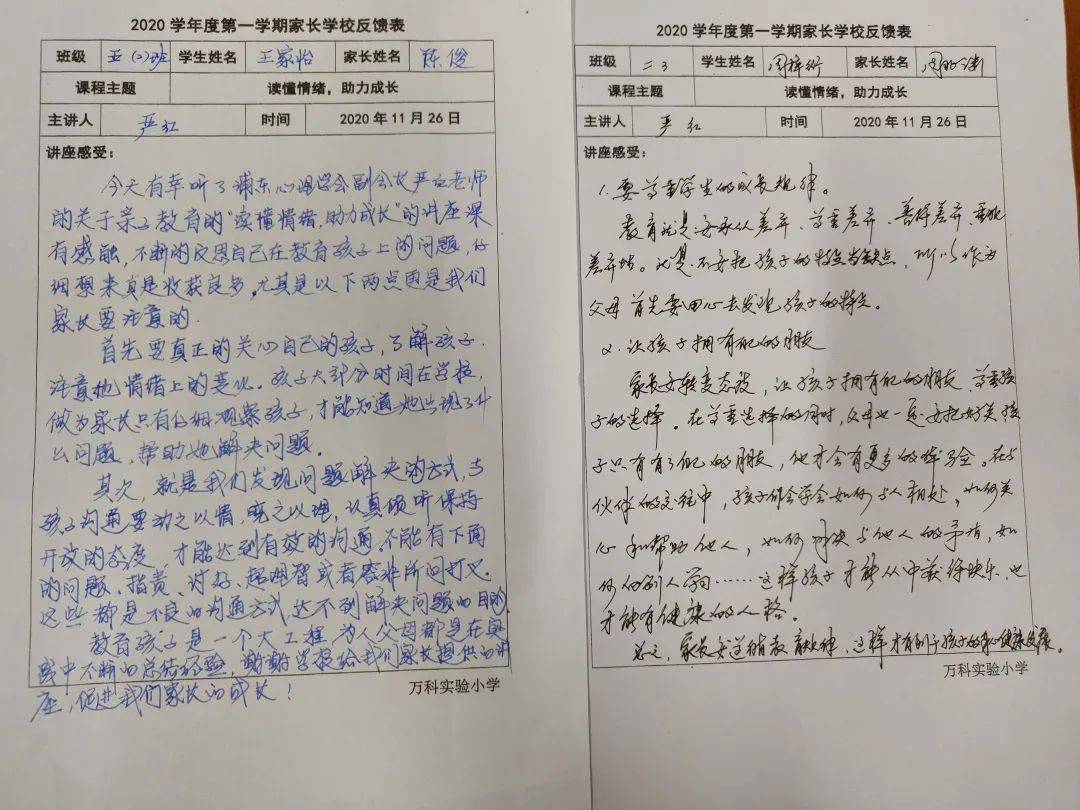 2020 学年度第一学期家长学校反馈表
班级 五(2)班 学生姓名 王家怡 家长姓名 陈俊
课程主题 读懂情绪，助力成长
主讲人 严红 时间 2020 年 11 月 26 日
讲座感受：
今天有幸听了浦东心理学会副会长严红老师
的关于亲子教育的"读懂情绪，助力成长"的讲座深
有感触，不断的反思自己在教育孩子上的问题，仔
细想来真是收获良多。尤其是以下两点因是我们
家长要注意的.
首先要真正的关心自己的孩子，了解孩子.
注意他情绪上的变化。孩子大部分时间在学校，
做为家长只有仔细观察孩子，才能知道她出现了什
么问题，帮助她解决问题。
其次，就是我们发现问题解决的方式，与
孩子沟通要动之以情，晓之以理，认真倾听保持
开放的态度，才能达到有效的沟通，不能有下面
的问题。指责、讨好、超理智或者答非所问打叉.
这些都是不良的沟通方式，达不到解决问题的目的.
教育孩子是一个大工程，为人父母都是在实
践中不断的总结经验，谢谢学校给我们家长提供的讲
座，促进我们家长的成长！
万科实验小学
2020 学年度第一学期家长学校反馈表
班级 二3 学生姓名 周梓 家长姓名 周
课程主题 读懂情绪，助力成长
主讲人 严红 时间 2020 年 11 月 26 日
讲座感受：
1. 要尊重学生的成长规律。
教育就是要承认差异、尊重差异、善待差异、
差异。尤其是不要把孩子的特点当缺点，所以作为
父母首先要用心去发现孩子的特点。
2. 让孩子拥有自己的朋友
家长要转变态度，让孩子拥有自己的朋友，尊重孩
子的选择。在尊重选择的同时，父母也一定要把好关，孩
子只有有了自己的朋友，他才会有更多的体验。在与
伙伴的交往中，孩子们会学会如何与人相处，如何关
心和帮助他人，如何解决与他人的矛盾，如
何向别人学习……这样孩子才能从中获得快乐，也
才能有健康的人格。
总之，家长要遵循教育规律，这样才有利于孩子的身心健康发展。
万科实验小学